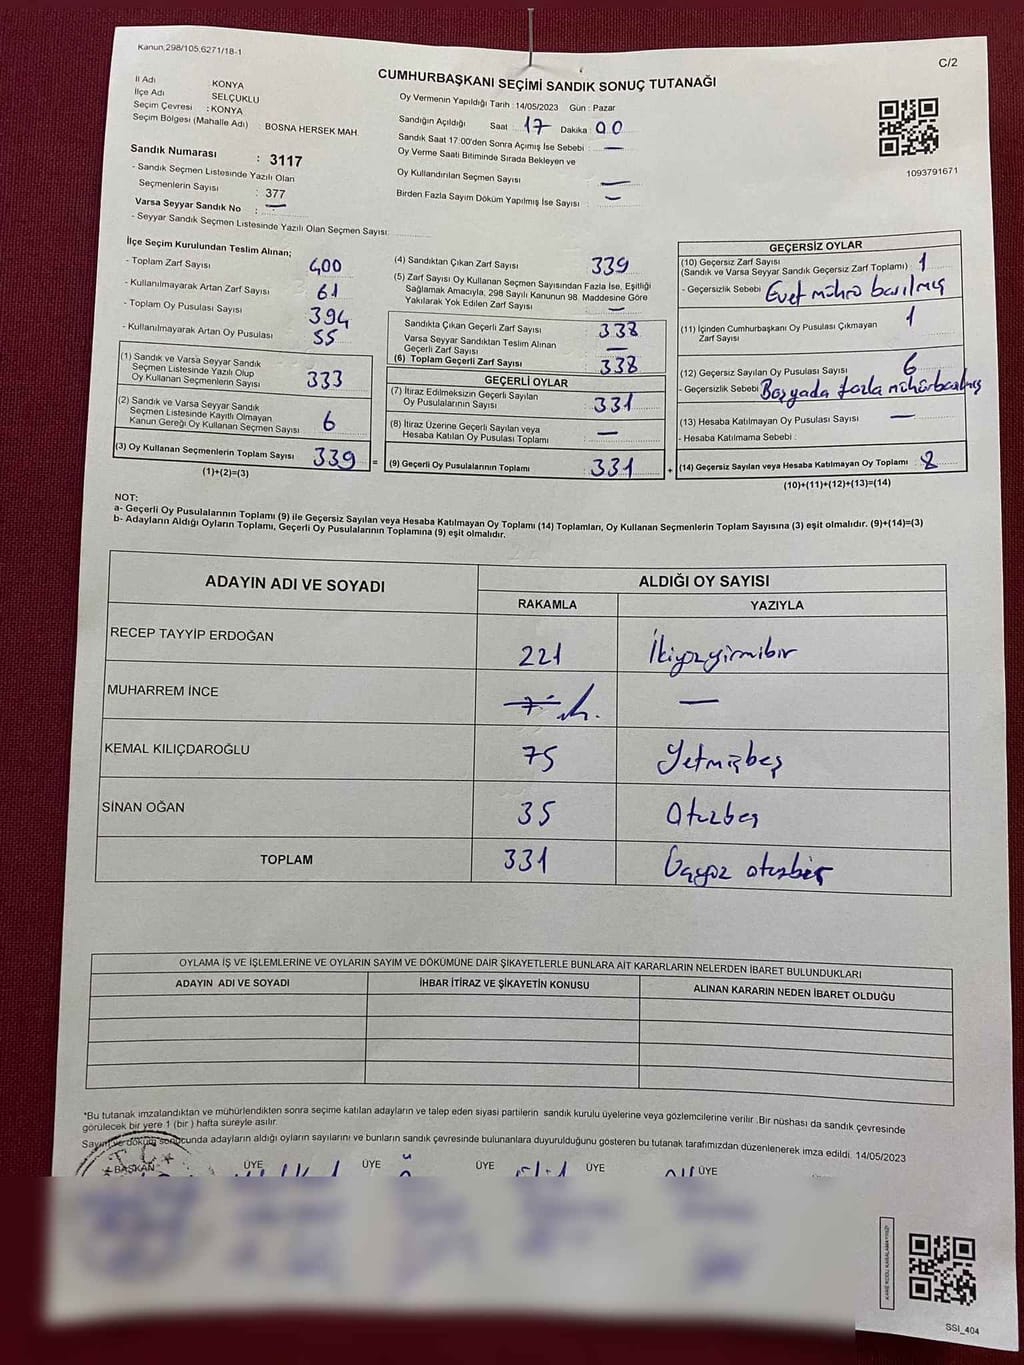 Kanun,298/105,6271/18-1
C/2
CUMHURBAŞKANI SEÇİMİ SANDIK SONUÇ TUTANAĞI
İl Adı KONYA
İlçe Adı SELÇUKLU
Seçim Çevresi : KONYA
Seçim Bölgesi (Mahalle Adı) : BOSNA HERSEK MAH.
Sandık Numarası : 3117
- Sandık Seçmen Listesinde Yazılı Olan
Seçmenlerin Sayısı : 377
Varsa Seyyar Sandık No : —
- Seyyar Sandık Seçmen Listesinde Yazılı Olan Seçmen Sayısı:
Oy Vermenin Yapıldığı Tarih : 14/05/2023 Gün : Pazar
Sandığın Açıldığı Saat 17 Dakika : 00
Sandık Saat 17:00'den Sonra Açımış İse Sebebi : —
Oy Verme Saati Bitiminde Sırada Bekleyen ve
Oy Kullandırılan Seçmen Sayısı : —
Birden Fazla Sayım Döküm Yapılmış İse Sayısı : —
1093791671
İlçe Seçim Kurulundan Teslim Alınan;
- Toplam Zarf Sayısı 400
- Kullanılmayarak Artan Zarf Sayısı 61
- Toplam Oy Pusulası Sayısı 394
- Kullanılmayarak Artan Oy Pusulası 55
(1) Sandık ve Varsa Seyyar Sandık
Seçmen Listesinde Yazılı Olup
Oy Kullanan Seçmenlerin Sayısı 333
(2) Sandık ve Varsa Seyyar Sandık
Seçmen Listesinde Kayıtlı Olmayan
Kanun Gereği Oy Kullanan Seçmen Sayısı 6
(3) Oy Kullanan Seçmenlerin Toplam Sayısı 339 =
(1)+(2)=(3)
(4) Sandıktan Çıkan Zarf Sayısı 339
(5) Zarf Sayısı Oy Kullanan Seçmen Sayısından Fazla İse, Eşitliği
Sağlamak Amacıyla, 298 Sayılı Kanunun 98. Maddesine Göre
Yakılarak Yok Edilen Zarf Sayısı —
Sandıkta Çıkan Geçerli Zarf Sayısı 338
Varsa Seyyar Sandıktan Teslim Alınan
Geçerli Zarf Sayısı —
(6) Toplam Geçerli Zarf Sayısı 338
GEÇERLİ OYLAR
(7) İtiraz Edilmeksizin Geçerli Sayılan
Oy Pusulalarının Sayısı : 331
(8) İtiraz Üzerine Geçerli Sayılan veya
Hesaba Katılan Oy Pusulası Toplamı : —
(9) Geçerli Oy Pusulalarının Toplamı : 331 +
GEÇERSİZ OYLAR
(10) Geçersiz Zarf Sayısı
(Sandık ve Varsa Seyyar Sandık Geçersiz Zarf Toplamı) : 1
- Geçersizlik Sebebi : Evet mührü basılmış
(11) İçinden Cumhurbaşkanı Oy Pusulası Çıkmayan
Zarf Sayısı 1
(12) Geçersiz Sayılan Oy Pusulası Sayısı 6
- Geçersizlik Sebebi fazla
(13) Hesaba Katılmayan Oy Pusulası Sayısı —
- Hesaba Katılmama Sebebi :
(14) Geçersiz Sayılan veya Hesaba Katılmayan Oy Toplamı : 8
(10)+(11)+(12)+(13)=(14)
NOT:
a- Geçerli Oy Pusulalarının Toplamı (9) ile Geçersiz Sayılan veya Hesaba Katılmayan Oy Toplamı (14) Toplamları, Oy Kullanan Seçmenlerin Toplam Sayısına (3) eşit olmalıdır. (9)+(14)=(3)
b- Adayların Aldığı Oyların Toplamı, Geçerli Oy Pusulalarının Toplamına (9) eşit olmalıdır.
ADAYIN ADI VE SOYADI ALDIĞI OY SAYISI
RAKAMLA YAZIYLA
RECEP TAYYİP ERDOĞAN 221 İkiyüzyirmibir
MUHARREM İNCE —
KEMAL KILIÇDAROĞLU 75 Yetmişbeş
SİNAN OĞAN 35 Otuzbeş
TOPLAM 331 Üçyüz otuzbir
OYLAMA İŞ VE İŞLEMLERİNE VE OYLARIN SAYIM VE DÖKÜMÜNE DAİR ŞİKAYETLERLE BUNLARA AİT KARARLARIN NELERDEN İBARET BULUNDUKLARI
ADAYIN ADI VE SOYADI İHBAR İTİRAZ VE ŞİKAYETİN KONUSU ALINAN KARARIN NEDEN İBARET OLDUĞU
*Bu tutanak imzalandıktan ve mühürlendikten sonra seçime katılan adayların ve talep eden siyasi partilerin sandık kurulu üyelerine veya gözlemcilerine verilir .Bir nüshası da sandık çevresinde
görülecek bir yere 1 (bir ) hafta süreyle asılır.
Sayım ve döküm sonucunda adayların aldığı oyların sayılarını ve bunların sandık çevresinde bulunanlara duyurulduğunu gösteren bu tutanak tarafımızdan düzenlenerek imza edildi. 14/05/2023
T.C.
BAŞKAN ÜYE ÜYE ÜYE ÜYE ÜYE
KARE KODU KARALAMAYINIZ!
SSI_404